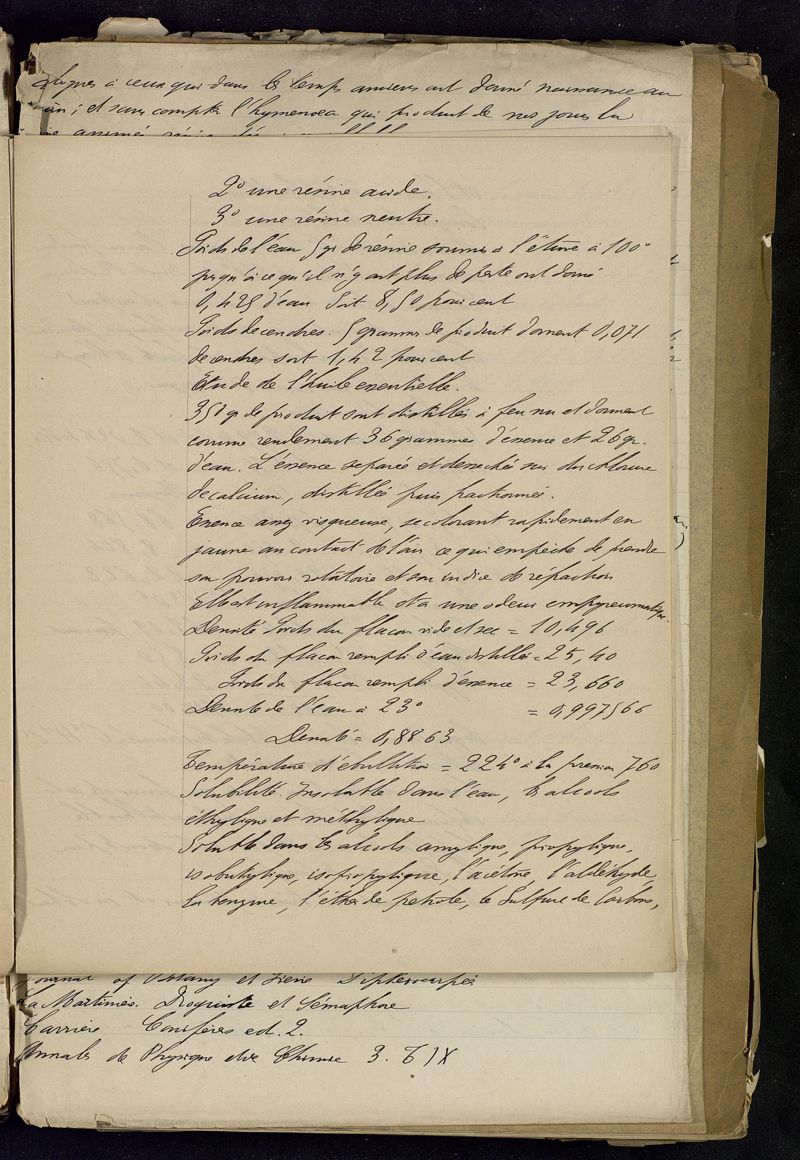 à ceux qui dans les temps anciens ont donné naissance au
; et sans compter l'hymenoea qui produit de nos jours la
2° une résine acide.
3° une résine neutre.
Poids de l'eau 5 gr de résine soumis à l'étuve à 100°
jusqu'à ce qu'il n'y ait plus de perte ont donné
0,425 d'eau Soit 8,50 pour cent
Poids de cendres. 5 grammes de produit donnent 0,071
de cendres soit 1,42 pour cent
Etude de l'huile essentielle.
350 g de produit sont distillés à feu nu et donnent
comme rendement 36 grammes d'essence et 26 gr.
d'eau. L'essence séparée et desséchée sur du chlorure
de calcium, distillée puis fractionnée.
Essence assez visqueuse, se colorant rapidement en
jaune au contact de l'air ce qui empêche de prendre
son pouvoir rotatoire et son indice de réfraction
Elle est inflammable et a une odeur empyreumatique.
Densité Poids du flacon vide et sec = 10,496
Poids du flacon rempli d'eau distillée = 25,40
Poids du flacon rempli d'essence = 23,660
Densité de l'eau à 23° = 0,997566
Densité = 0,8863
Température d'ébullition = 224° à la pression 760
Solubilité. Insoluble dans l'eau, les alcools
éthylique et méthylique
Soluble dans les alcools amylique, propylique,
isobutylique, isopropylique, l'acétone, l'aldéhyde,
la benzine, l'éther de pétrole, le Sulfure de Carbone,
Journal of Botany et Diptérocarpées
La Martinière. Droguiste et Sémaphore
Carrière Conifères ed. 2.
Annales de Physique et de Chimie 3.